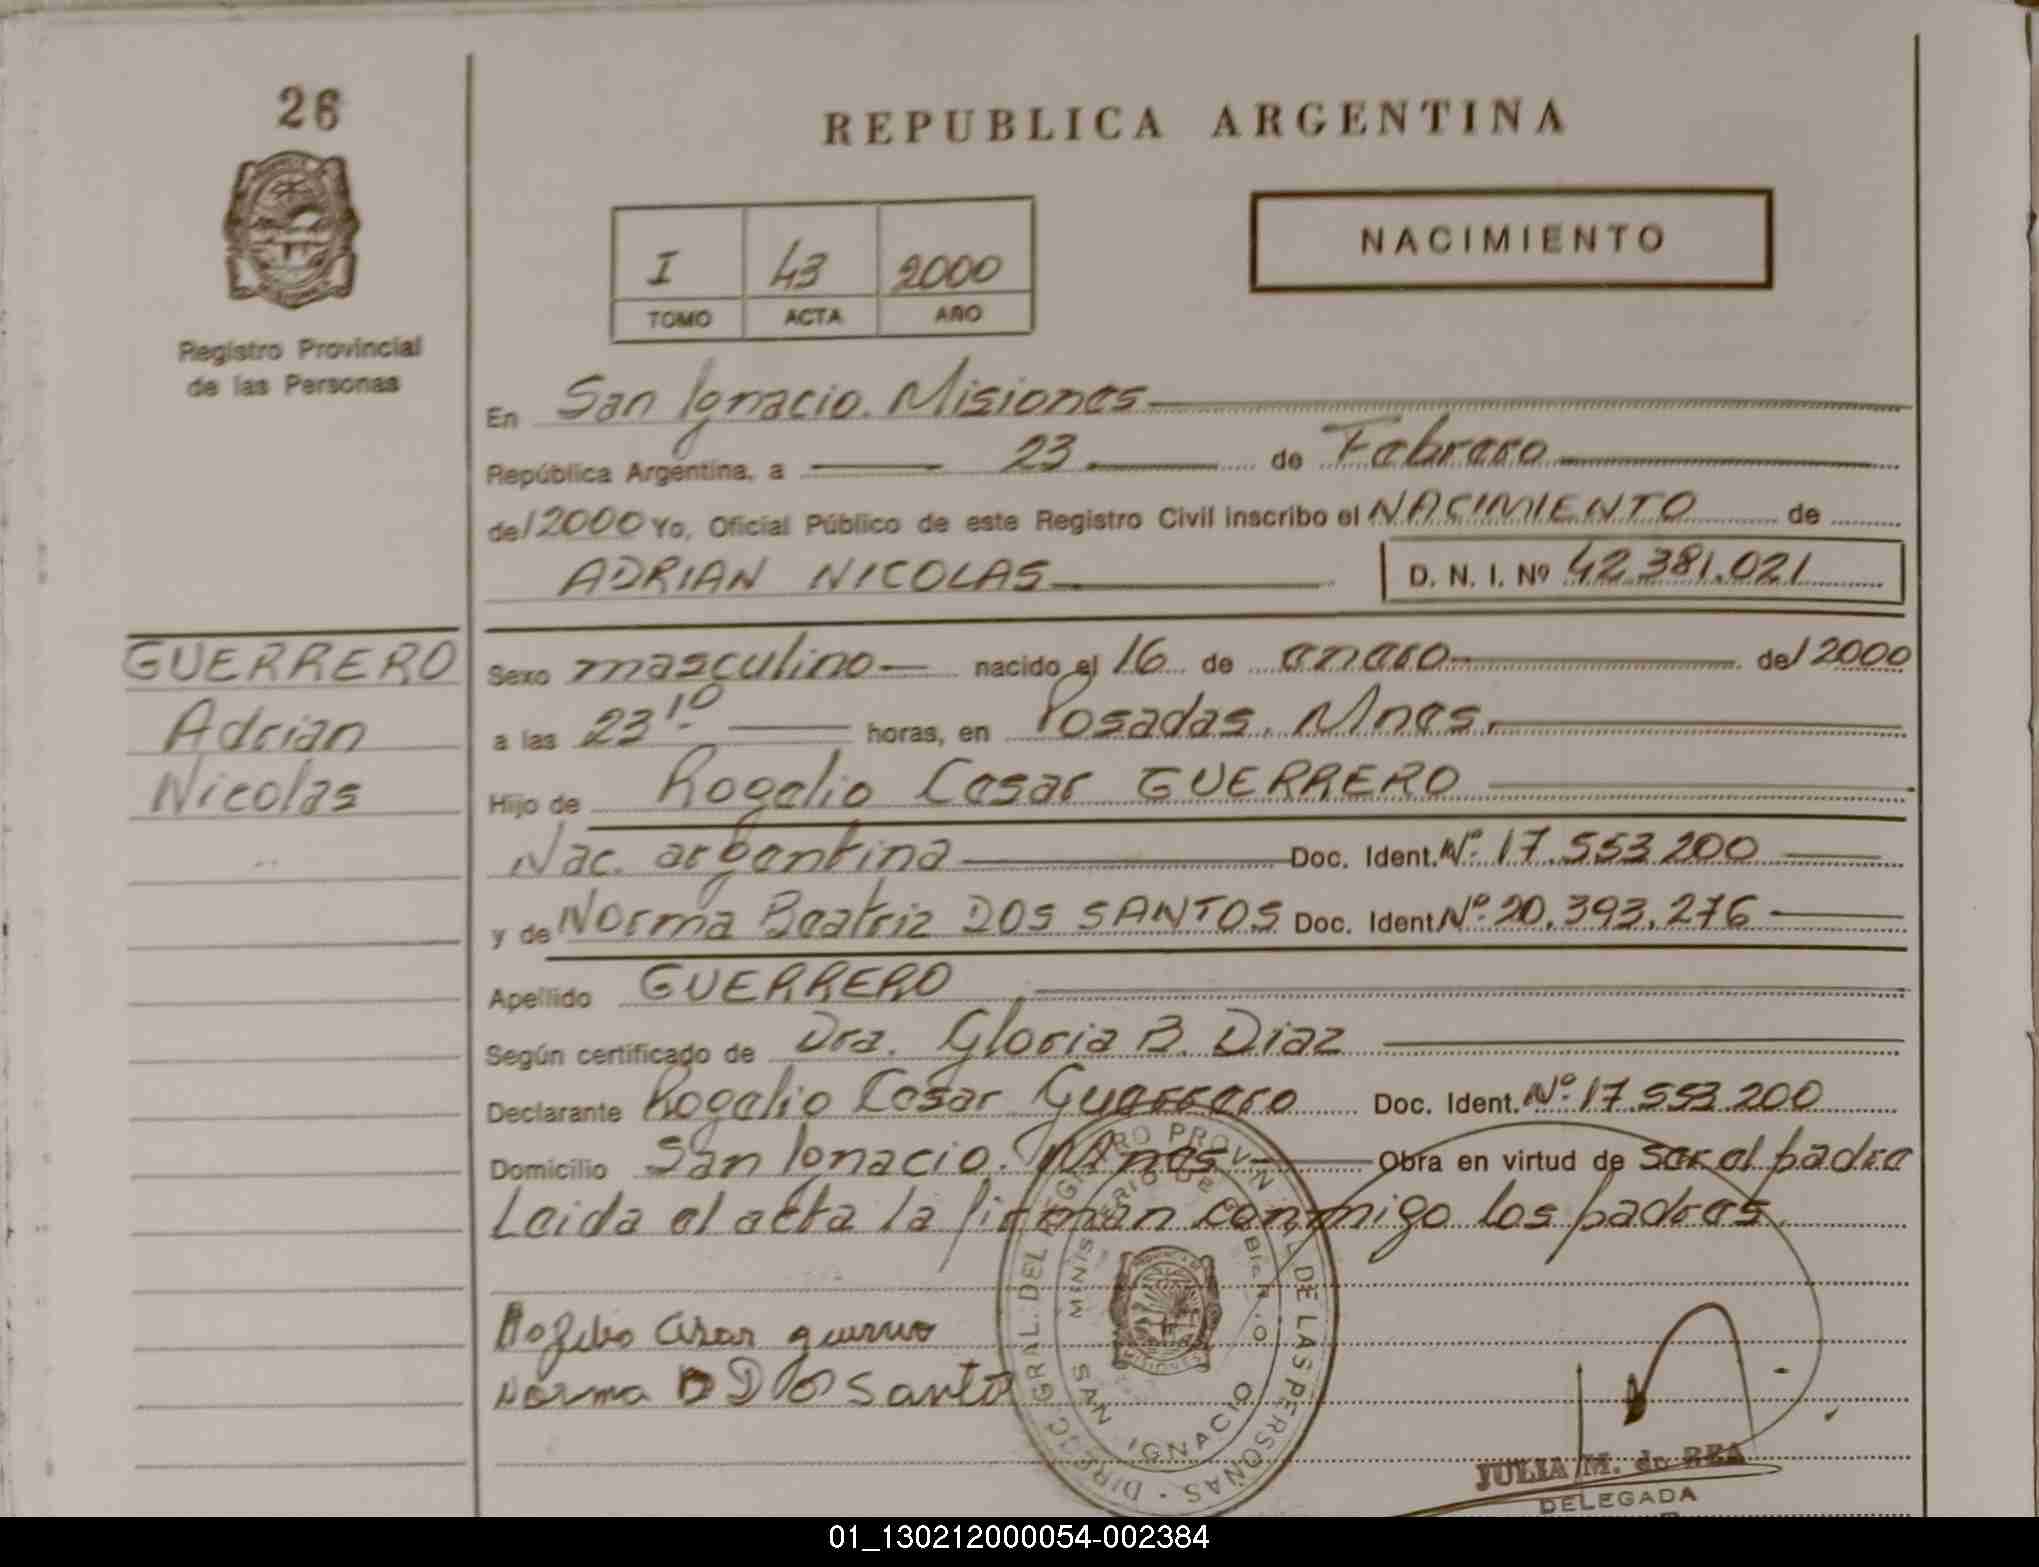 26
REPUBLICA ARGENTINA
NACIMIENTO
I 43 2000
TOMO ACTA AÑO
Registro Provincial
de las Personas
En San Ignacio. Misiones
República Argentina, a 23 de Febrero
de/2000 Yo, Oficial Público de este Registro Civil inscribo el NACIMIENTO de
ADRIAN NICOLAS D. N. I. Nº 42.381.021
GUERRERO
Adrian
Nicolas
Sexo masculino nacido el 16 de enero de/2000
a las 23 10 horas, en Posadas. Mnes.
Hijo de Rogelio Cesar GUERRERO
Nac. argentina Doc. Ident. Nº 17.553.200
y de Norma Beatriz DOS SANTOS Doc. Ident Nº 20.393.276
Apellido GUERRERO
Según certificado de Dra. Gloria B. Diaz
Declarante Rogelio Cesar Guerrero Doc. Ident. Nº 17.553.200
Domicilio San Ignacio. Mnes Obra en virtud de ser el padre
Leida el acta la firman conmigo los padres.
Rogelio Cesar guerrero
Norma B Dos Santo
DIREC. GRAL. DEL REGISTRO PROVINCIAL DE LAS PERSONAS
MINISTERIO DE GOBIERNO
MISIONES
SAN IGNACIO
JULIA M. de REA
DELEGADA
01_130212000054-002384